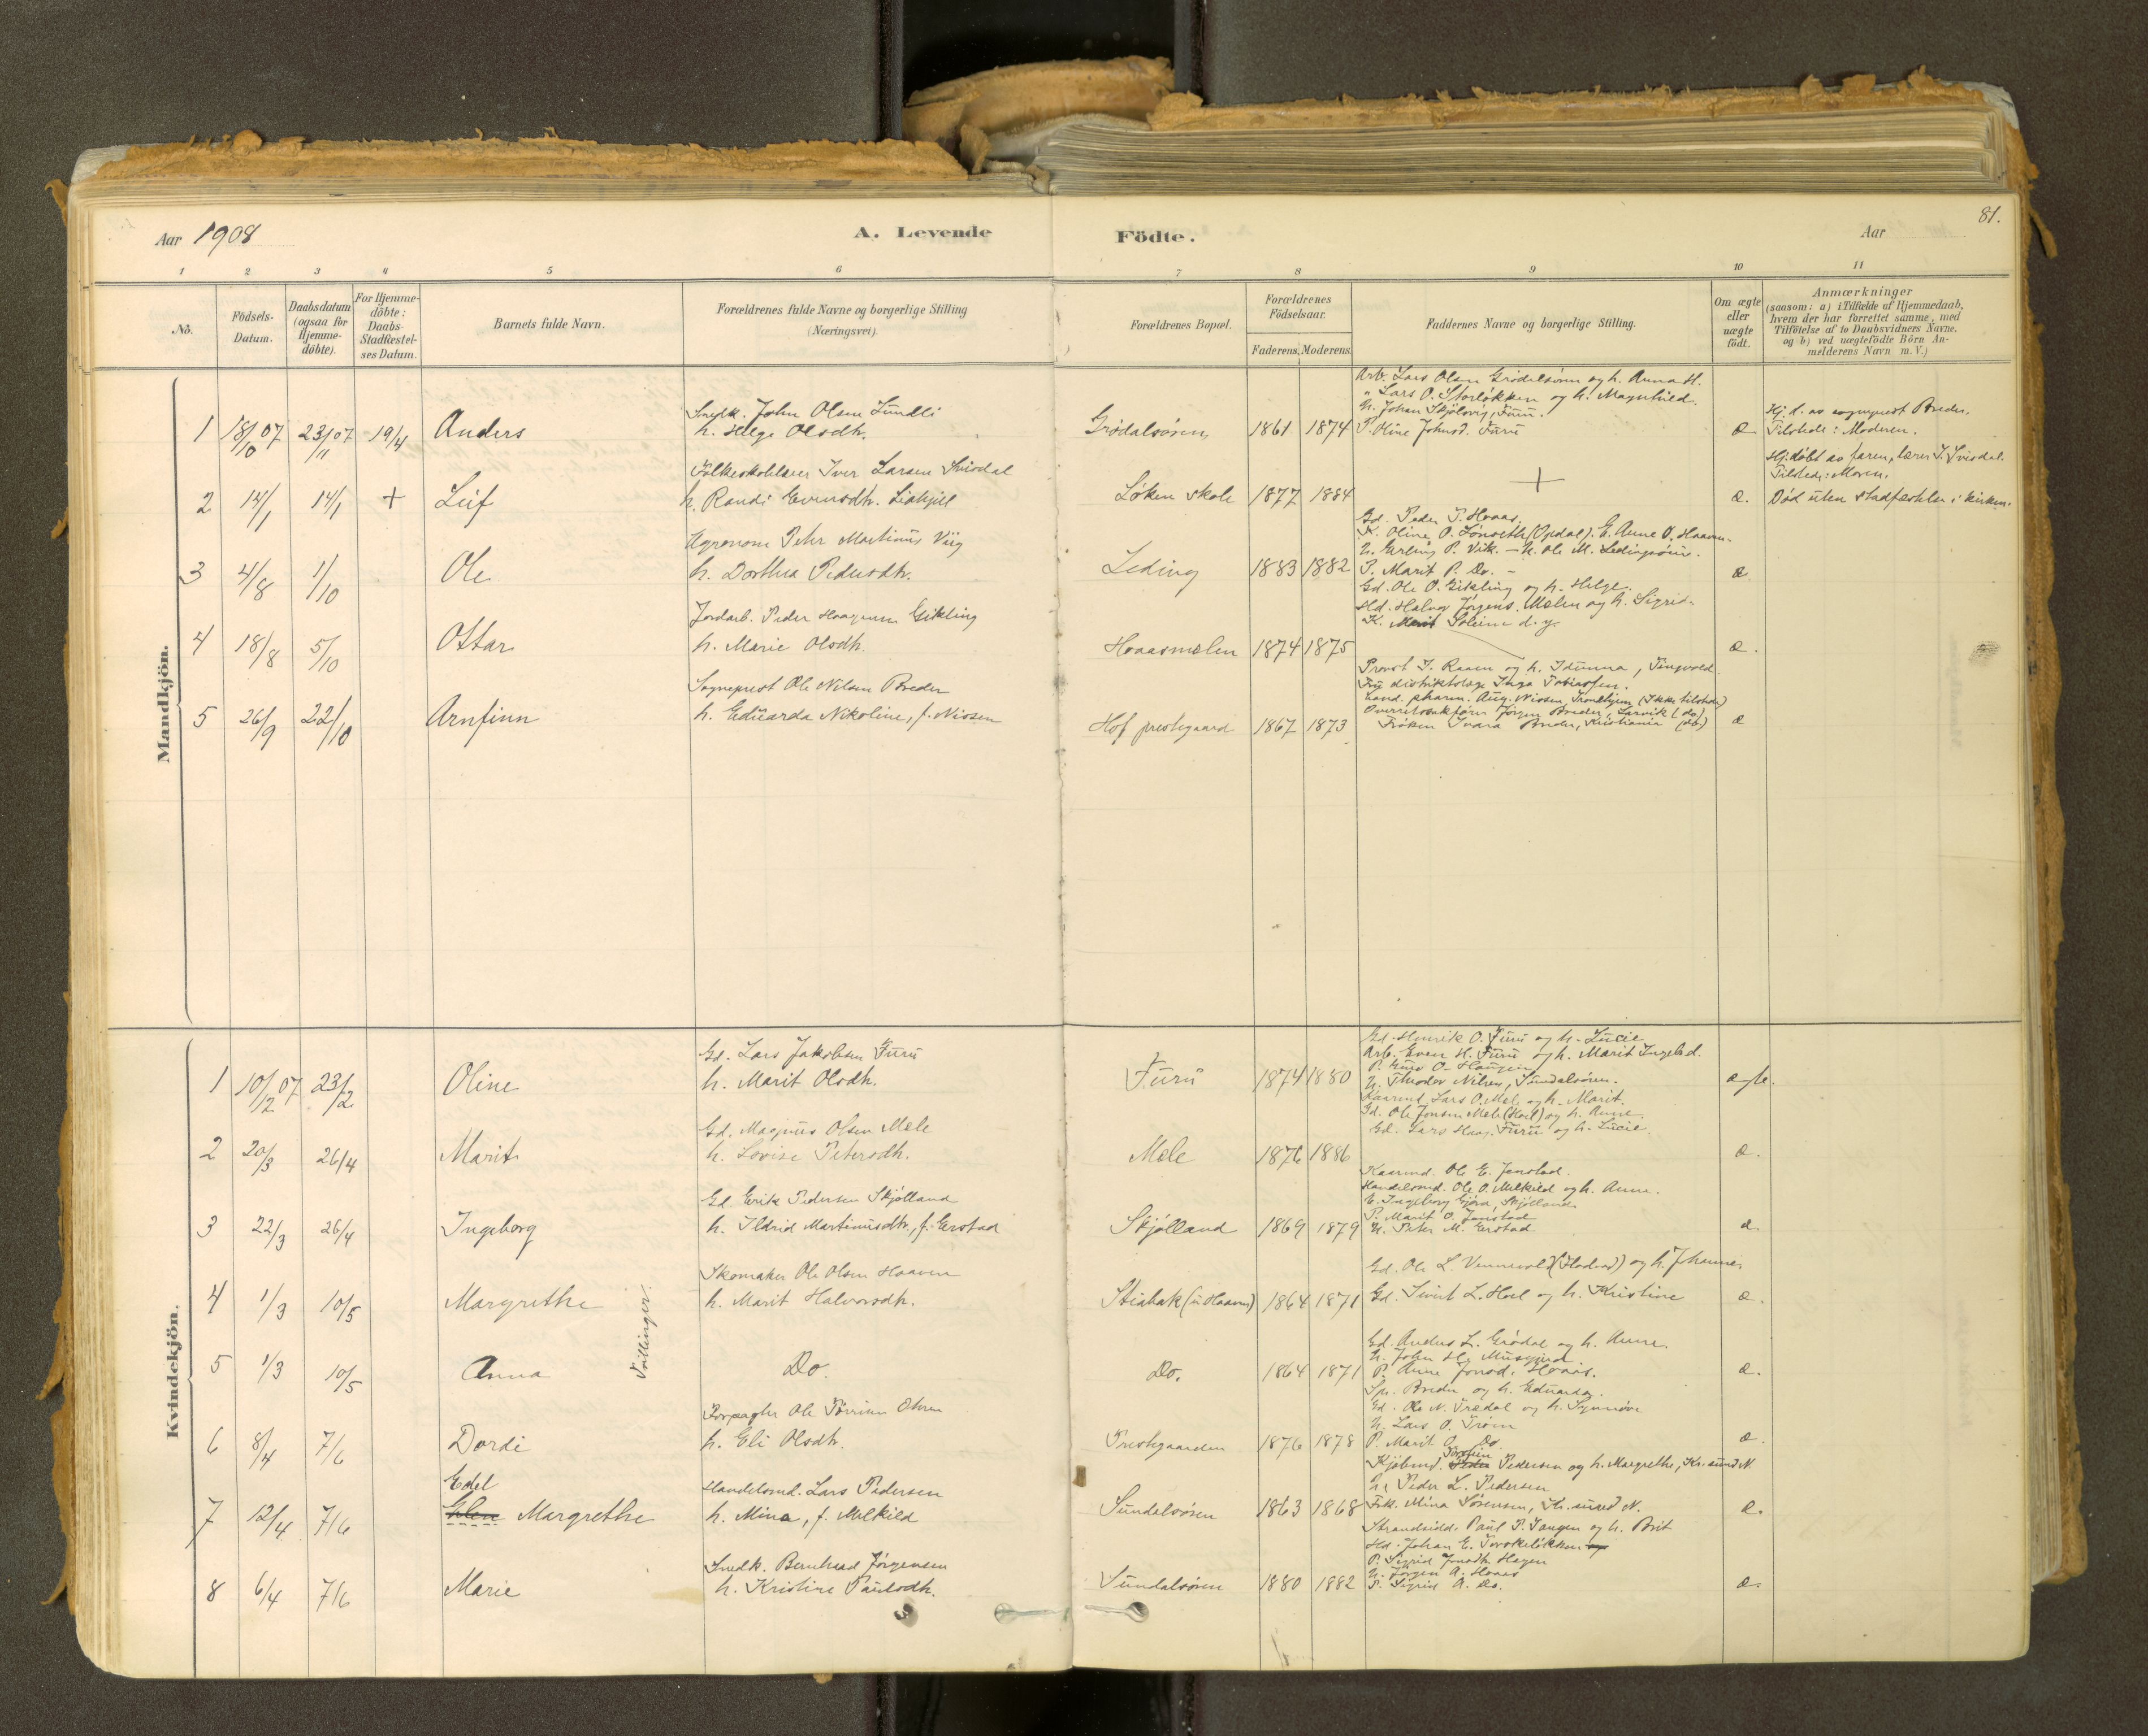 81.
Aar 1908
A. Levende
Födte.
Aar
1 2 3 4 5 6 7 8 9 10 11
No.
Födsels-Datum.
Daabsdatum (ogsaa for Hjemmedöbte).
For Hjemmedöbte: Daabs-Stadfæstelses Datum.
Barnets fulde Navn.
Forældrenes fulde Navne og borgerlige Stilling (Næringsvei).
Forældrenes Bopæl.
Forældrenes Födselsaar.
Faderens. Moderens.
Faddernes Navne og borgerlige Stilling.
Om ægte eller uægte födt.
Anmærkninger
(saasom: a) i Tilfælde af Hjemmedaab, hvem der har forrettet samme, med Tilföielse af to Daabsvidners Navne. og b) ved uægtefödte Börn Anmelderens Navn m. V.)
Mandkjön.
Arb. Lars Olsen Grødalsøren og h. Anna H.
" Lars O. Storløkken og h. Magnhild.
Snedk. John Olsen Lundli
U. Johan Skjølsvig, Furu.
Hj. d. av sogneprest Breder.
1 18/10 07 23/11 07 19/4 Anders h. Helge Olsdtr. Grødalsøren 1861 1874 P. Oline Johnsd. Furu æ Tilstede: Moderen.
Folkeskolelærer Iver Larsen Svisdal
Hj.døbt av faren, lærer I. Svisdal.
Tilstede: Moren.
2 14/1 14/1 + Leif h. Randi Evensdtr. Liahjell Løken skole 1877 1884 + æ. Død uten stadfæstelse i kirken.
Gd. Peder P. Hoaas.
K. Oline O. Lønseth (Opdal). E. Anne O. Haaven.
Agronom Peter Martinus Viig
U. Erling P. Vik. - U. Ole M. Ledingsøren.
3 4/8 1/10 Ole h. Dorthea Pedersdtr. Leding 1883 1882 P. Marit P. Do. - æ
Gd. Ole O. Gikling og h. Helge.
Hd. Halvor Jørgens. Mælen og h. Sigrid.
Jordarb. Peder Haagensen Gikling
K. Marit Soleim d. y.
4 18/8 5/10 Ottar h. Marie Olsdtr. Hoaasmælen 1874 1875 æ.
Provst J. Raaen og h. Idunna, Tingvold
Sogneprest Ole Nilsen Breder
Fru distriktslæge Inga Tobiassen.
Cand. pharm. Aug. Nissen, Trondhjem (Ikke tilstede)
Overretssakfører Jørgen Breder, Larvik (do)
5 26/9 22/10 Arnfinn h. Eduarda Nikoline, f. Nissen Hof prestegaard 1867 1873 Frøken Ivara Breder, Kristiania (do) æ
Kvindekjön.
Gd. Henrik O. Furu og h. Lucie
Gd. Lars Jakobsen Furu
Arb. Even H. Furu og h. Marit Ingebd.
P. Guro O. Haugen
1 10/12 07 23/2 Oline h. Marit Olsdtr. Furu 1874 1880 U. Theodor Nilsen, Sundalsøren. ægte.
Kaarmd. Lars O. Mæle og h. Marit.
Gd. Ole Jonsen Mæle (Hoel) og h. Anne.
Gd. Magnus Olsen Mæle
Gd. Lars Haag. Furu og h. Lucie.
2 20/3 26/4 Marit h. Lovise Petersdtr. Mæle 1876 1886 æ.
Kaarmd. Ole E. Jenstad.
Handelsmd. Ole O. Melkild og h. Anne.
Gd. Erik Pedersen Skjølland
U. Ingeborg Gjøra, Skjølland.
P. Marit O. Jenstad
3 22/3 26/4 Ingeborg h. Ildrid Martinusdtr, f. Erstad Skjølland 1869 1879 U. Peter M. Erstad æ.
Gd. Ole L. Vennevold og h. Johanne.
Skomaker Ole Olsen Haaven
4 1/3 10/5 Margrethe h. Marit Halvorsdtr. Stiabak (u. Haaven) 1864 1871 Gd. Sivert L. Hoel og h. Kristine æ.
Tvillinger.
Gd. Anders L. Grødal og h. Anne.
U. John H. Musgjerd
5 1/3 10/5 Anna Do. Do. 1864 1871 P. Anne Jonsd. Hoaas. æ.
Spr. Breder og h. Eduarda.
Gd. Ole N. Trædal og h. Synnøve
Forpagter Ole Tørrisen Ohren
U. Lars O. Trøen
6 8/4 7/6 Dordi h. Eli Olsdtr. Prestegaarden 1876 1878 P. Marit O. Do. æ.
Torstein
Kjøbmd. Peder Pedersen og h. Margrethe, Kr.sund N.
Edel
Handelsmd. Lars Pedersen
U. Peder L. Pedersen
7 12/4 7/6 Ellen Margrethe h. Mina, f. Melkild Sundalsøren 1863 1868 Frk. Mina Sørensen, Kr.sund N. æ.
Strandsidd. Paul P. Tangen og h. Brit
Hd. Johan E. Torskeløkken og
Snedk. Bernhard Jørgensen
P. Sigrid Jonsdtr. Hagen
U. Jørgen A. Hoaas
8 6/4 7/6 Marie h. Kristine Paulsdtr. Sundalsøren 1880 1882 P. Sigrid A. Do. æ.